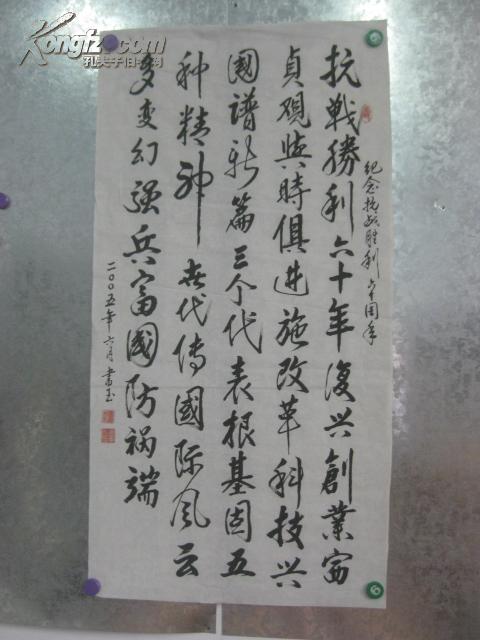 纪念抗战胜利六十周年
抗戰勝利六十年復兴創業富
貞观與時俱进施改革科技兴
國谱新篇三个代表根基固五
种精神世代傳國际风云
多变幻强兵富國防祸端
二00五年六月書玉
Kongfz.com
孔夫子旧书网